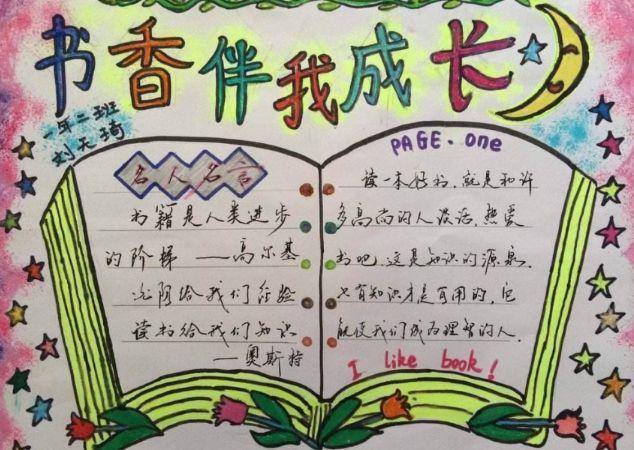 书香伴我成长
一年二班
刘天琦
名人名言
书籍是人类进步
的阶梯——高尔基
光阴给我们经验
读书给我们知识
——奥斯特
PAGE.one
读一本好书，就是和许
多高尚的人谈话，热爱
书吧，这是知识的源泉，
只有知识才是有用的，它
能使我们成为理智的人
I like book!